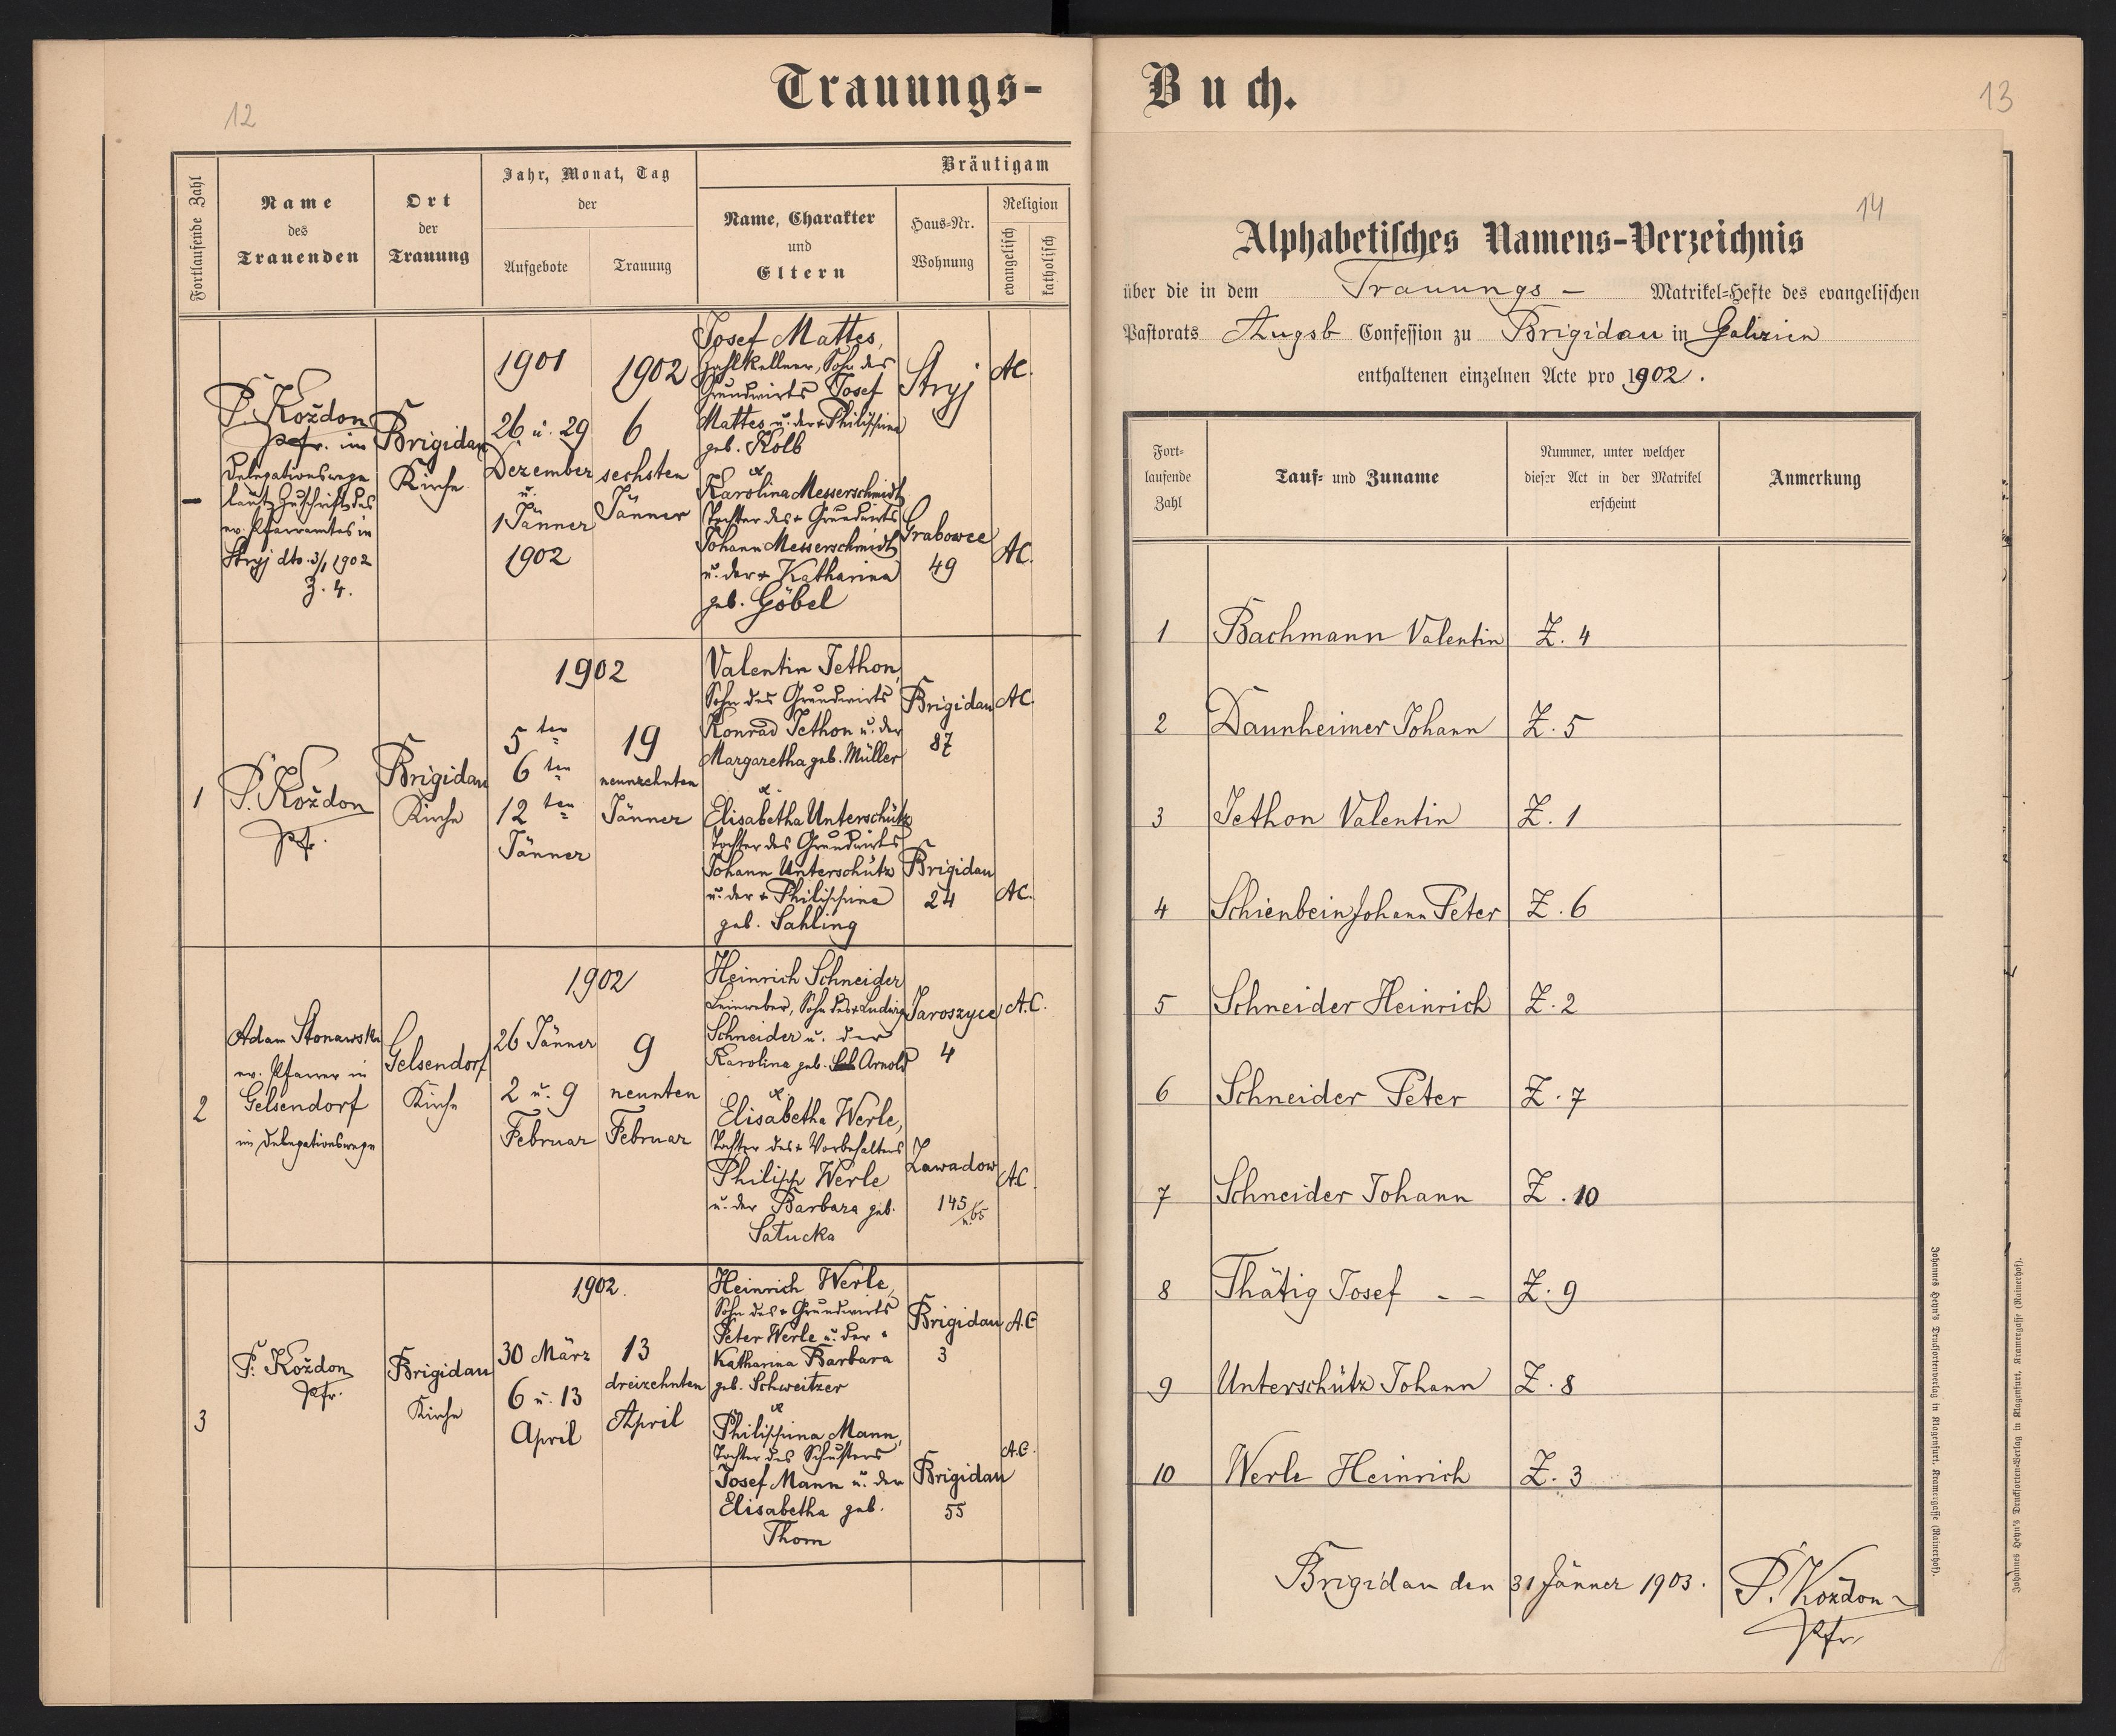 Trauungs-
12
Fortlaufende Zahl
Name
des
Trauenden
Ort
der
Trauung
Jahr, Monat, Tag
der
Aufgebote
Trauung
Bräutigam
Name, Charakter
und
Eltern
Haus-Nr.
Wohnung
Religion
evangelisch
katholisch
–
P. Koždon
Pfr. im
Delegationswege
laut Zuschrift des
ev. Pfarramtes in
Stryj dto. 3/1 1902
Z. 4.
Brigidau
Kirche
1901
26 u. 29
Dezember
u.
1 Jänner
1902
1902
6
sechsten
Jänner
Josef Mattes,
Zahlkellner, Sohn des
Grundwirts Josef
Mattes u. der + Philippina
geb. Kolb
&
Karolina Messerschmidt
Tochter des + Grundwirts
Johann Messerschmidt
u. der + Katharina
geb. Göbel
Stryj
Grabowce
49
AC.
AC.
1
P. Koždon
Pfr.
Brigidau
Kirche
1902
5 ten
6 ten
12 ten
Jänner
19
neunzehnten
Jänner
Valentin Jethon,
Sohn des Grundwirts
Konrad Jethon u. der
Margaretha geb. Müller
&
Elisabetha Unterschütz
Tochter des Grundwirts
Johann Unterschütz
u. der + Philippina
geb. Sahling
Brigidau
87
Brigidau
24
AC.
AC.
2
Adam Stonawski
ev. Pfarrer in
Gelsendorf
im Delegationswege
Gelsendorf
Kirche
1902
26 Jänner
2 u. 9
Februar
9
neunten
Februar
Heinrich Schneider
Leinweber, Sohn des + Ludwig
Schneider u. der
Karolina geb. Arnold
&
Elisabetha Werle,
Tochter des + Vorbehalters
Philipp Werle
u. der Barbara geb.
Satucka
Jaroszyce
4
Zawadow
145
u. 65
A.C.
AC.
3
P. Koždon
Pfr.
Brigidau
Kirche
1902.
30 März
6 u. 13
April
13
dreizehnten
April
Heinrich Werle,
Sohn des + Grundwirts
Peter Werle u. der +
Katharina Barbara
geb. Schweitzer
&
Philippina Mann,
Tochter des Schusters
Josef Mann u. der
Elisabetha geb.
Thom
Brigidau
3
Brigidau
55
A.C
A.C.
Buch.
13
14
Alphabetisches Namens-Verzeichnis
über die in dem Trauungs- Matrikel-Hefte des evangelischen
Pastorats Augsb Confession zu Brigidau in Galizien
enthaltenen einzelnen Acte pro 1902.
Fort-
laufende
Zahl
Tauf- und Zuname
Nummer, unter welcher
dieser Act in der Matrikel
erscheint
Anmerkung
1 Bachmann Valentin Z. 4
2 Dannheimer Johann Z. 5
3 Jethon Valentin Z. 1
4 Schienbein Johann Peter Z. 6
5 Schneider Heinrich Z. 2
6 Schneider Peter Z. 7
7 Schneider Johann Z. 10
8 Thätig Josef - - Z. 9
9 Unterschütz Johann Z. 8
10 Werle Heinrich Z. 3
Brigidau den 31 Jänner 1903. P. Koždon
Pfr.
Johannes Heyn's Drucksortenverlag in Klagenfurt, Kramergasse (Rainerhof).
Johannes Heyn's Drucksorten-Verlag in Klagenfurt, Kramergasse (Rainerhof).